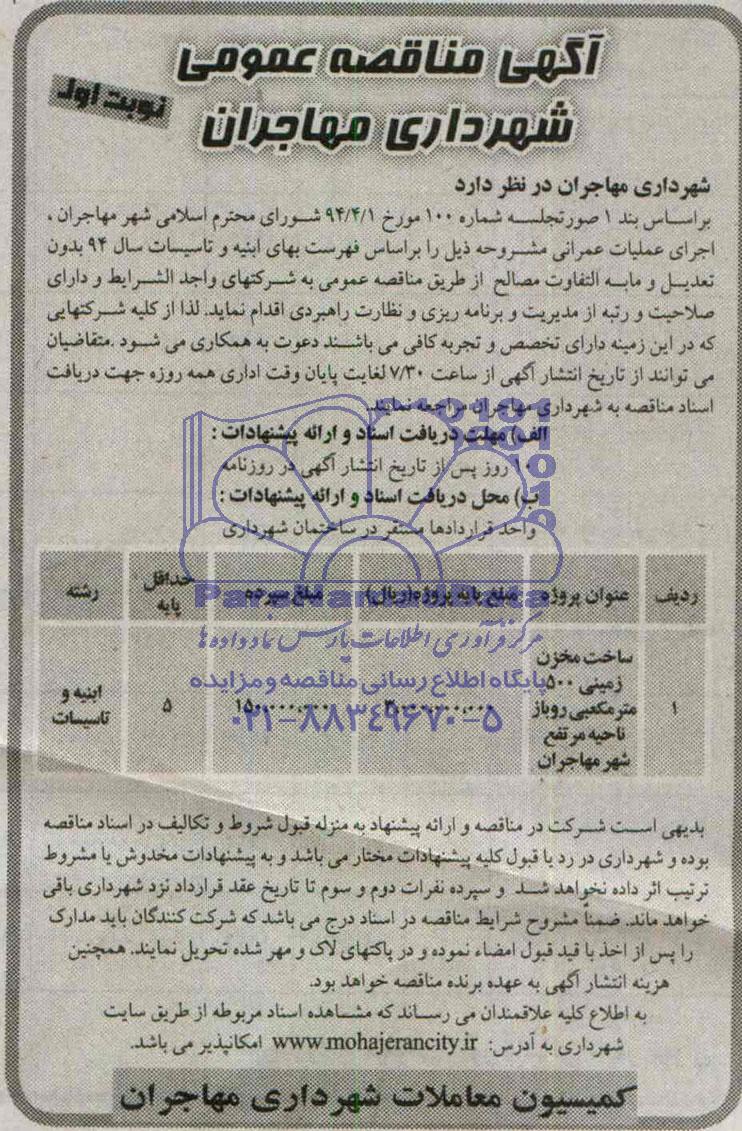 آگهی مناقصه عمومی
شهرداری مهاجران
نوبت اول
شهرداری مهاجران در نظر دارد
براساس بند ۱ صورتجلسه شماره ۱۰۰ مورخ ۹۴/۴/۱ شورای محترم اسلامی شهر مهاجران ،
اجرای عملیات عمرانی مشروحه ذیل را براساس فهرست بهای ابنیه و تاسیسات سال ۹۴ بدون
تعدیل و مابه التفاوت مصالح از طریق مناقصه عمومی به شرکتهای واجد الشرایط و دارای
صلاحیت و رتبه از مدیریت و برنامه ریزی و نظارت راهبردی اقدام نماید. لذا از کلیه شرکتهایی
که در این زمینه دارای تخصص و تجربه کافی می باشند دعوت به همکاری می شود .متقاضیان
می توانند از تاریخ انتشار آگهی از ساعت ۷/۳۰ لغایت پایان وقت اداری همه روزه جهت دریافت
اسناد مناقصه به شهرداری مهاجران مراجعه نمایند.
الف) مهلت دریافت اسناد و ارائه پیشنهادات :
۱۰ روز پس از تاریخ انتشار آگهی در روزنامه
ب) محل دریافت اسناد و ارائه پیشنهادات :
واحد قراردادها مستقر در ساختمان شهرداری
ردیف عنوان پروژه مبلغ پایه پروژه(ریال) مبلغ سپرده حداقل پایه رشته
ParsNamadData
مرکز فرآوری اطلاعات پارس نماد داده ها
۱ ساخت مخزن
زمینی ۵۰۰
مترمکعبی روباز
ناحیه مرتفع
شهر مهاجران
۳،۰۰۰،۰۰۰،۰۰۰ ۱۵۰،۰۰۰،۰۰۰ ۵ ابنیه و
تاسیسات
پایگاه اطلاع رسانی مناقصه و مزایده
۰۲۱-۸۸۳۴۹۶۷۰-۵
بدیهی است شرکت در مناقصه و ارائه پیشنهاد به منزله قبول شروط و تکالیف در اسناد مناقصه
بوده و شهرداری در رد یا قبول کلیه پیشنهادات مختار می باشد و به پیشنهادات مخدوش یا مشروط
ترتیب اثر داده نخواهد شد و سپرده نفرات دوم و سوم تا تاریخ عقد قرارداد نزد شهرداری باقی
خواهد ماند. ضمناً مشروح شرایط مناقصه در اسناد درج می باشد که شرکت کنندگان باید مدارک
را پس از اخذ با قید قبول امضاء نموده و در پاکتهای لاک و مهر شده تحویل نمایند. همچنین
هزینه انتشار آگهی به عهده برنده مناقصه خواهد بود.
به اطلاع کلیه علاقمندان می رساند که مشاهده اسناد مربوطه از طریق سایت
شهرداری به آدرس: www.mohajerancity.ir امکانپذیر می باشد.
کمیسیون معاملات شهرداری مهاجران